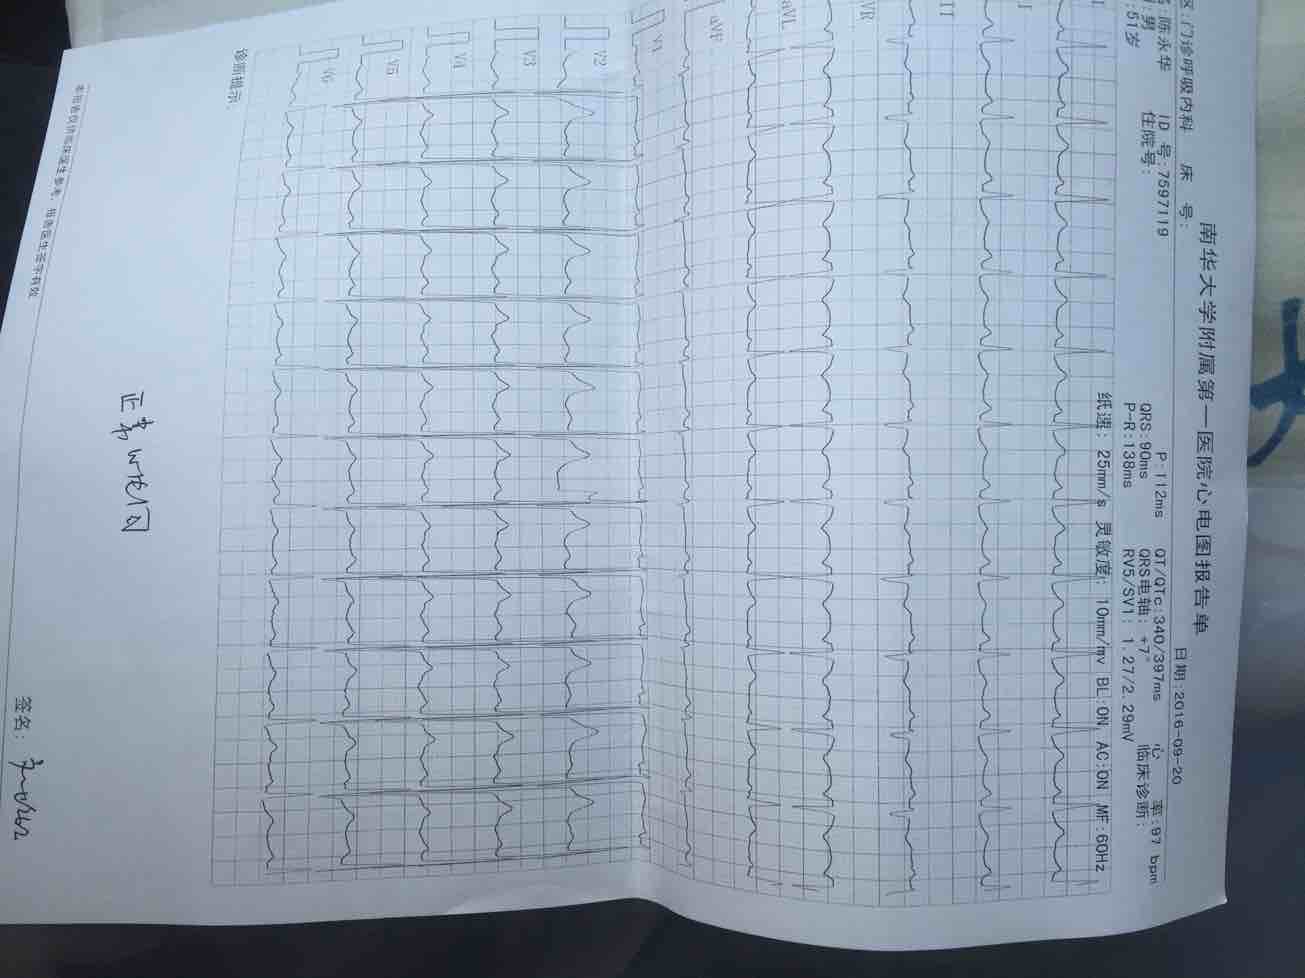 南华大学附属第一医院心电图报告单
日期:2016-09-20
区:门诊呼吸内科 床 号:
陈永华 ID 号:7597119
:男 住院号:
:51岁
P:112ms QT/QTc:340/397ms 心 率:97 bpm
QRS:90ms QRS电轴: +7° 临床诊断:
P-R:138ms RV5/SV1: 1.27/2.29mV
纸速: 25mm/s 灵敏度: 10mm/mv BL:ON, AC:ON MF:60Hz
I
II
VR
aVL
aVF
V1
V2
V3
V4
V5
V6
诊断提示:
正常心电图
签名:
本报告仅供临床医生参考, 报告医生签字有效